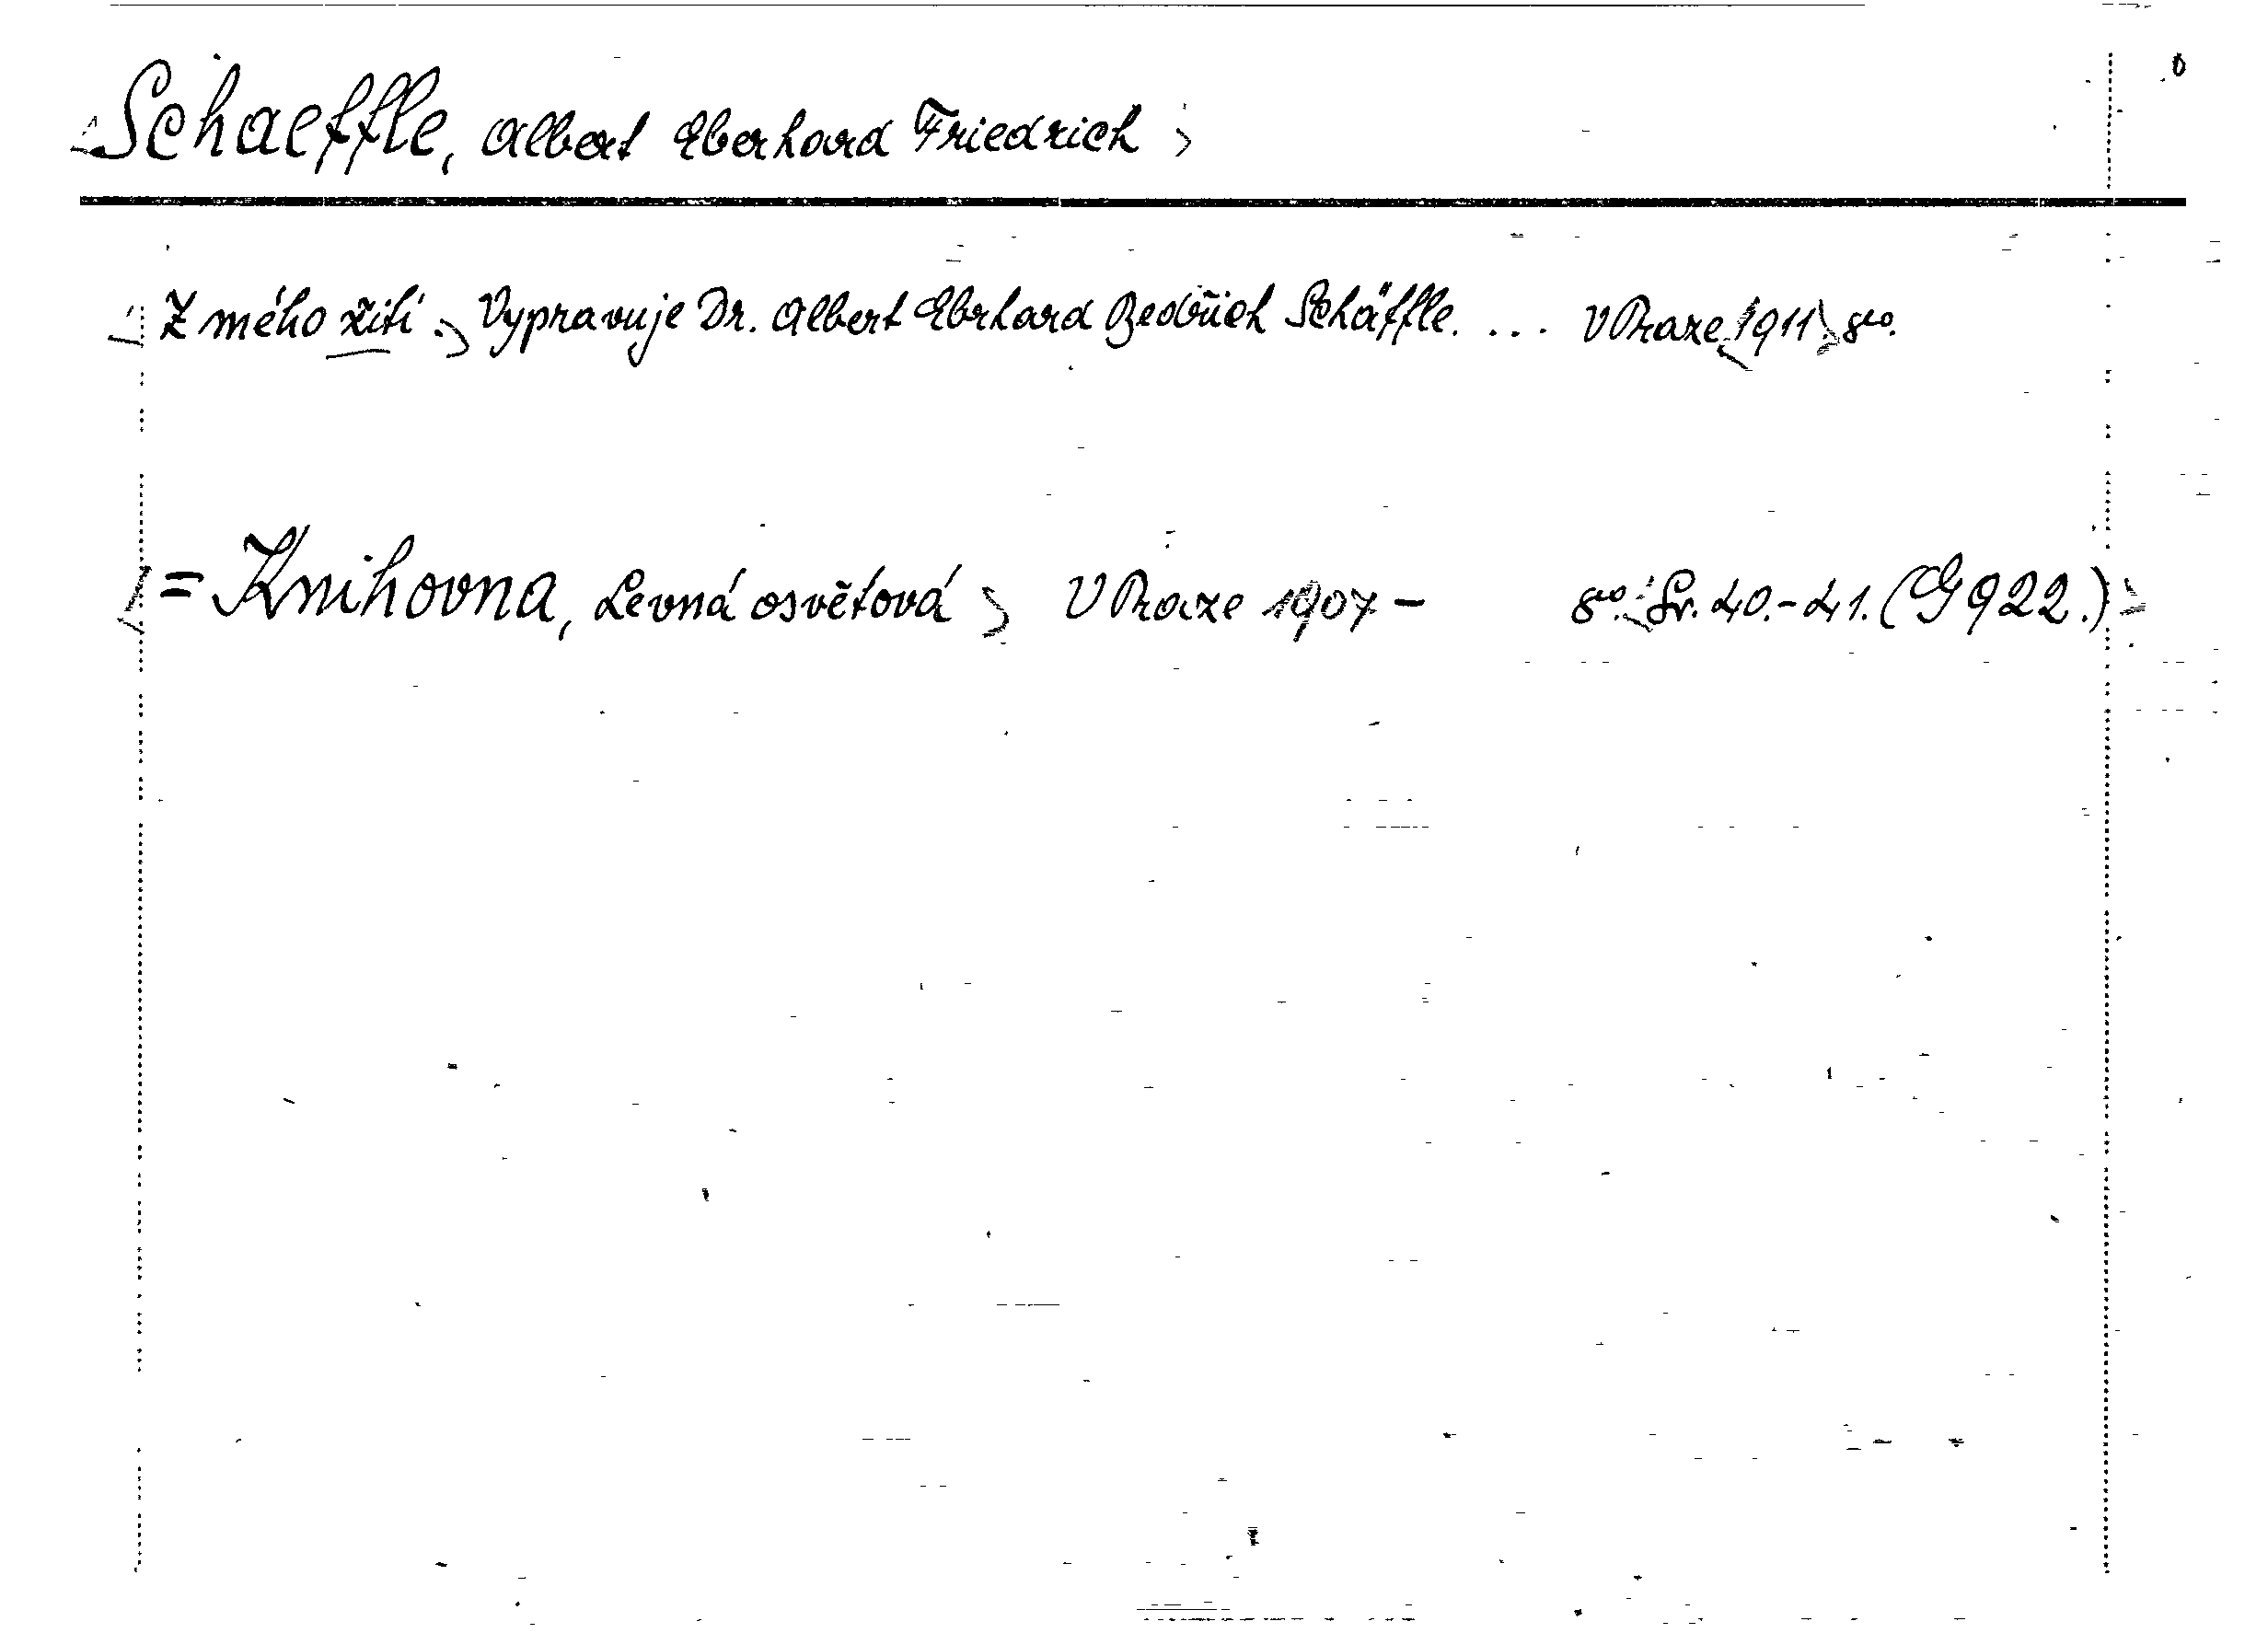 Schaeffle, Albert Eberhard Friedrich
Z mého žití. Vypravuje Dr. Albert Eberhard Bedřich Schäffle. ... V Praze 1911. 8vo.
= Knihovna, Levná osvětová V Praze 1907 - 8vo. Sv. 40.-41. (G 922.)